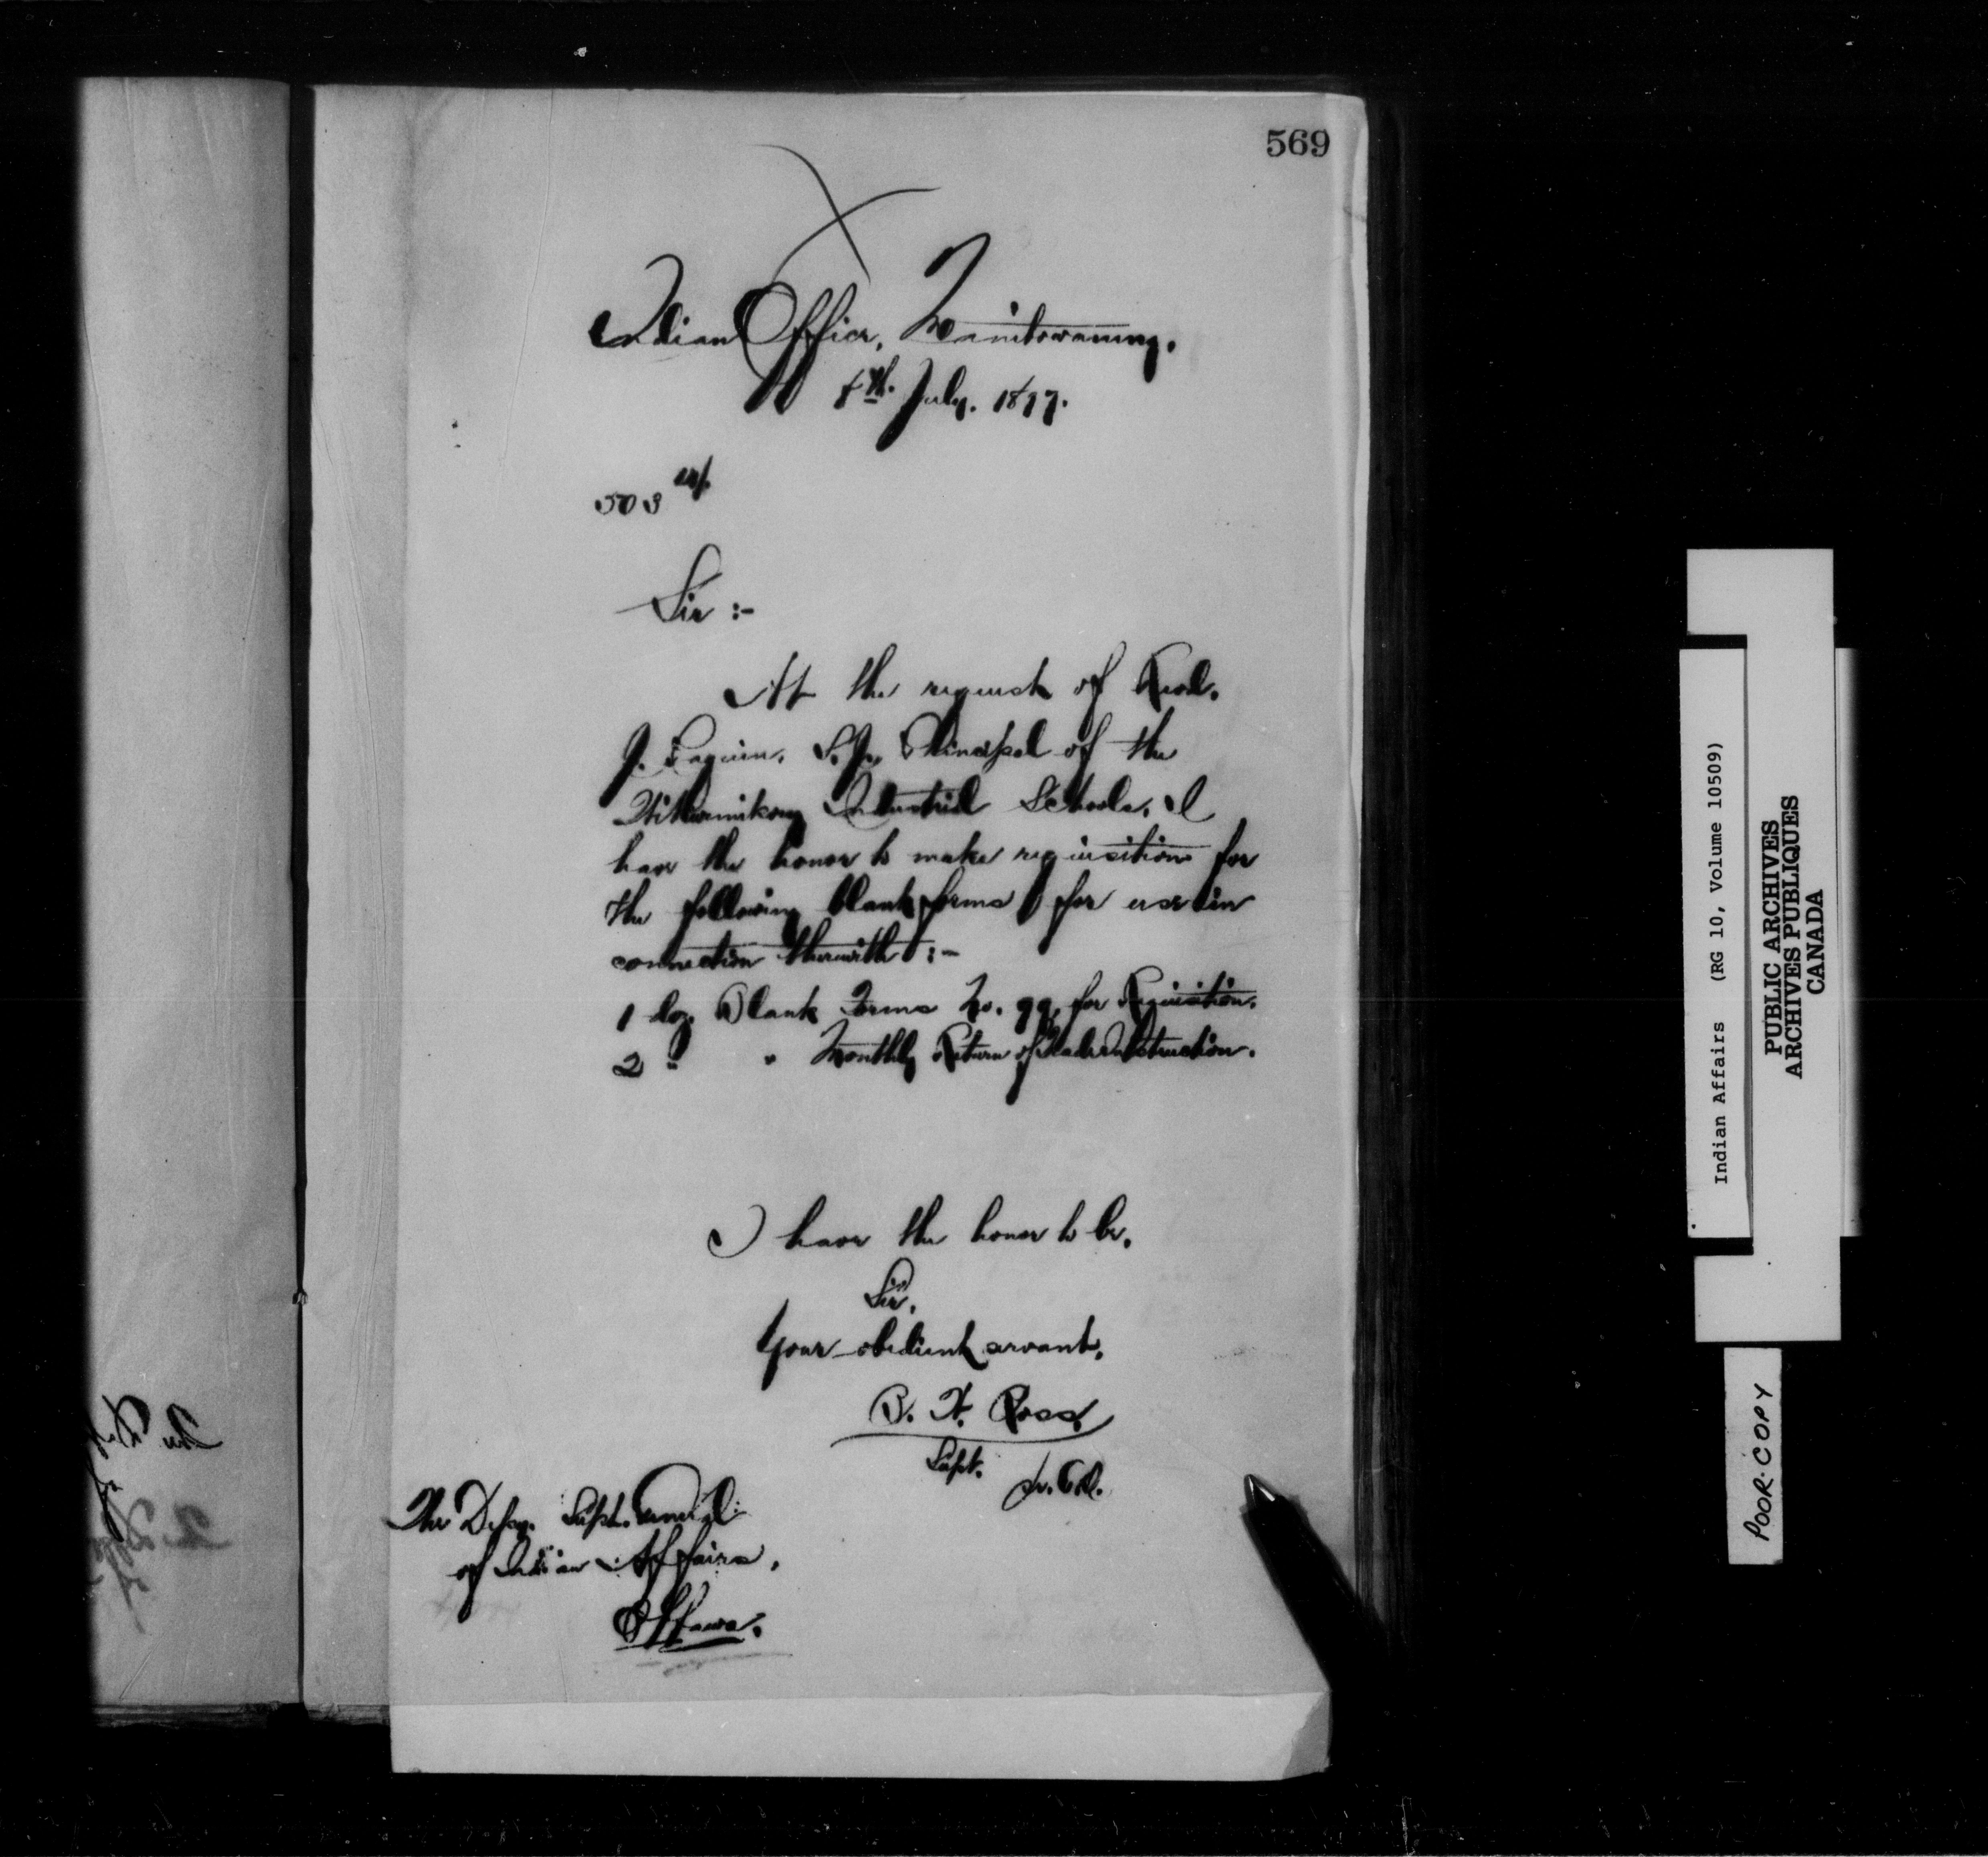 569
Indian Office, Manitowaning,
8th. July, 1897.
503
Sir :-
At the request of Revd.
J. Paquin, S.J., Principal of the
Wikwemikong Industrial Schools, I
have the honor to make requisition for
the following blank forms for use in
connection therewith :-
1 doz. Blank Forms No. 99, for Requisition.
2 " " Monthly Return of Trade Instruction.
I have the honor to be,
Sir,
Your obedient servant,
B. W. Ross
Supt.
The Depy. Supt. General
of Indian Affairs,
Ottawa.
Indian Affairs (RG 10, Volume 10509)
PUBLIC ARCHIVES
ARCHIVES PUBLIQUES
CANADA
POOR COPY